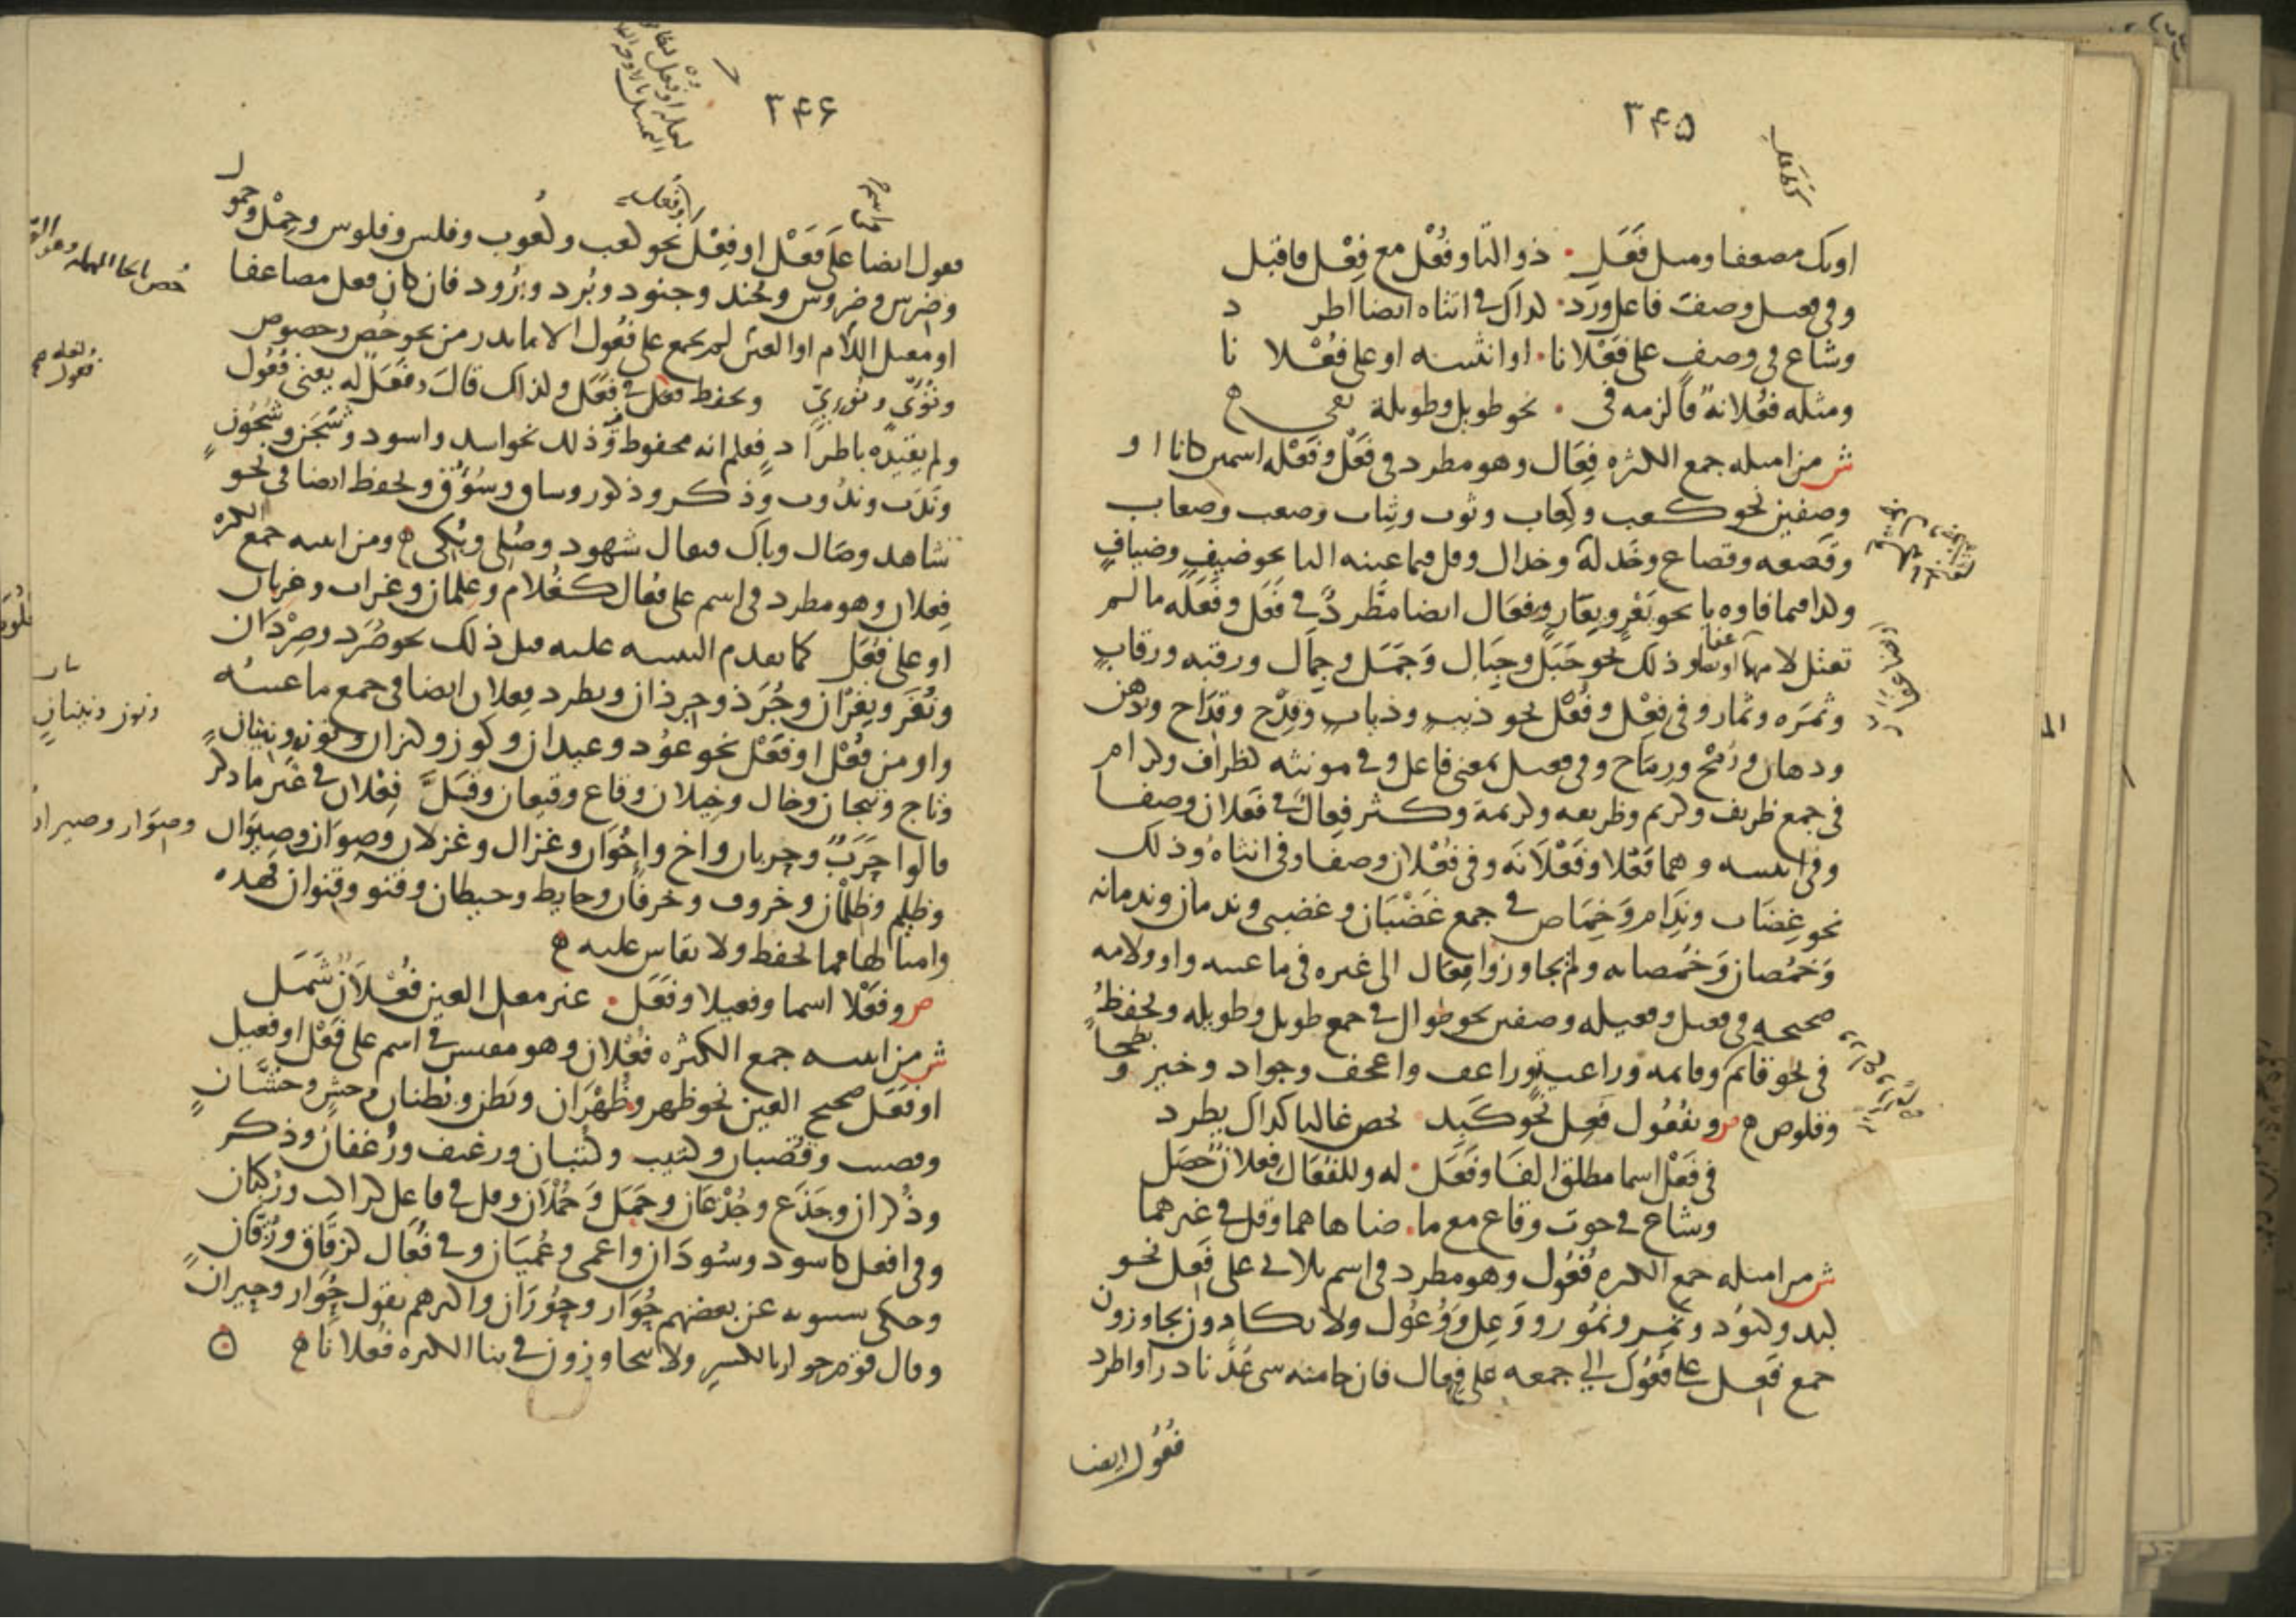 ٣۴۵
اويك مضعفا ومثل فَعَل • ذو التا وفُعْل مع فِعْل فاقبل
وفي فعيل وصف فاعل ورد • كذاك في انثاه ايضا اطرد
وشاع في وصف على فَعْلانا • او انثييه او على فُعْلانا
ومثله فعُلانة فالزمه في • نحو طويل وطويلة تفي ه
ش من امثله جمع الكثره فِعَال وهو مطرد في فَعْل وفَعْله اسمين كانا او
وصفين نحو كعب وكِعاب وثوب وثِياب وصعب وصعاب
وقصعه وقصاع وخَدلة وخدال وقل فيما عينه اليا نحو ضيفٍ وضيافٍ
وكذا فيما فاوه يا نحو يَعْر ويِعَار وفِعَال ايضا مطّرد في فَعَل وفَعَله ما لم
تعتل لامهما او يضاعفا وذلك نحو جَبَل وجِبَال وَجَمَل وجِمَال ورقبه ورقاب
وثمَره وثمار وفي فِعْل وفُعْل نحو ذيب وذياب وقِدْح وقداح ودُهن
ودهان ورُمْح ورِمَاح وفي فعيل بمعنى فاعل وفي مونثه كظراف وكرام
في جمع ظريف وكريم وظريفه وكريمة وكثر فِعال في فَعلان وصفا
وفي انثييه وهما فَعْلا وفَعْلَانَه وفي فُعْلان وصفا وفي انثاه وذلك
نحو غِضَاب ونِدَام وَخِمَاص في جمع غَضْبَان وغضبى وندمان وندمانه
وَخمُصان وَخمُصانه ولم يجاوزوا فِعَال الى غيره في ما عينه واو ولامه
صحيحه في فعيل وفعيله وصفين نحو طوال في جمع طويل وطويله ويحفظ
في نحو قائم وقايمه وراعٍ واعجف وجواد وخير وبطحا
وقلوص ه ص وبفُعُول فَعِل نحو كَبِد • يخص غالبا كذاك يطرد
في فَعْل اسما مطلق الفا وفَعَل • له وللفُعَال فِعلان حصَل
وشاع في حوت وقاع مع ما • ضاهاهما وقل في غيرهما
ش من امثله جمع الكثره فُعُول وهو مطرد في اسم ثلاثي على فَعِل نحو
كبد وكبُود ونَمِر ونمُور ووَعِل وَوُعُول ولا يكادون يجاوزون
جمع فَعِل على فُعُول الى جمعه على فِعال فان جا منه شي عُدّ نادرا واطرد
فُعُول ايضا
٣۴۶
فعول ايضا على فَعْل او فِعْل نحو كعب وكُعوب وفلس وفلوس وحِمْل وحمول
وضِرس وضروس وجُند وجنود وبُرد وبرُود فان كان فعل مضاعفا
او معتل اللام او العين لم يجمع على فُعُول الا ما ندر من نحو خُص وخصوص
ونُؤى ونُؤىّ ويحفظ فعول في فَعَل ولذلك قال وفَعَل له يعنى فُعُول
ولم يقيّده باطراد فعلم انه محفوظ وذلك نحو اسد واسود وشَجَن وشُجُون
ونَدَب وندُوب وذكر وذكور وساق وسُوُوق ويحفظ ايضا في نحو
شاهد وصال وباك فيقال شهود وصُلى وبُكى ه ومن ابنيه جمع الكثره
فِعلان وهو مطرد في اسم على فُعال كغُلام وغِلمان وغراب وغربان
او على فُعَل كما تقدم التنبيه عليه قبل ذلك نحو صُرَد وصِرْدَان
ونُغَر ونِغْران وجُرَذ وجِرذان ويطرد فِعلان ايضا في جمع ما عينه
واو من فُعْل او فَعَل نحو عوُد وعيدان وكوز وكيزان ونون ونينان
وتاج وتيجان وخال وخيلان وقاع وقيعان وقَلَّ فِعْلان في غير ما ذكر
قالوا خَرَب وخربان واخ واخوان وغزال وغزلان وصِوَار وصيران
وظليم وظِلمان وخروف وخرفان وحايط وحيطان وقنو وقنوان فهذه
وامثالها مما يحفظ ولا يقاس عليه ه
ص وفَعْلا اسما وفعيلا وفَعَل • غير معل العين فُعْلَانٌ شَمَل
ش من ابنيه جمع الكثره فُعْلان وهو مقيس في اسم على فَعْل او فعيل
او فَعَل صحيح العين نحو ظهر وظُهْرَان وبَطن وبُطنان وحشّ وحُشّانٍ
وقضيب وقُضبان وكثيب وكُثبان ورغيف ورُغفان وذكر
وذُكران وجَذَع وجُذْعَان وحَمَل وَحُمْلَان وقل في فاعل كراكب ورُكبان
وفي افعل كاسود وسُودَان واعمى وعُميَان وفي فُعَال كزقاق وزُقّان
وحكى سيبويه عن بعضهم حُوَار وحُورَان واكثرهم يقول حِوَار وحيران
وقال قوم حوار بالكسر ولا يتجاوزون في بنا الكثره فُعلانا ه
ونون ونينانٍ
وصوَار وصيران